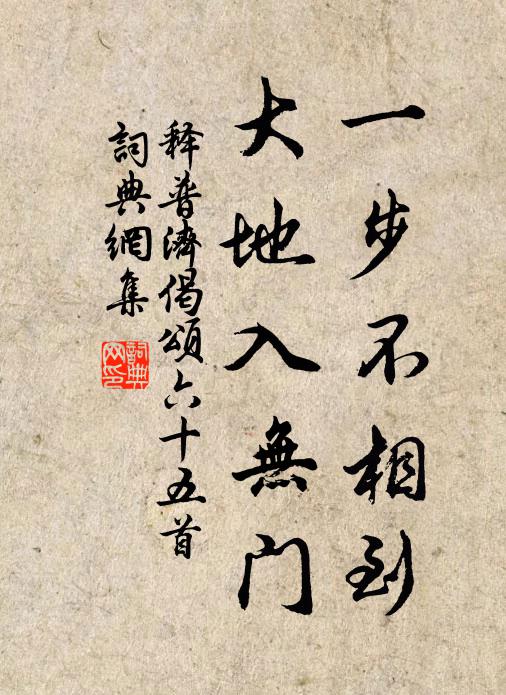 一步不相到
大地入無门
释普濟偈頌六十五首
詞典網集
詞典网印